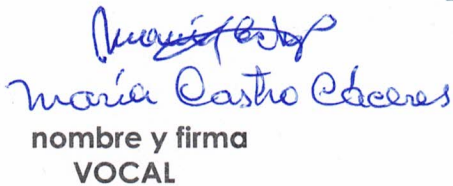 María Castro Cáceres
nombre y firma
VOCAL